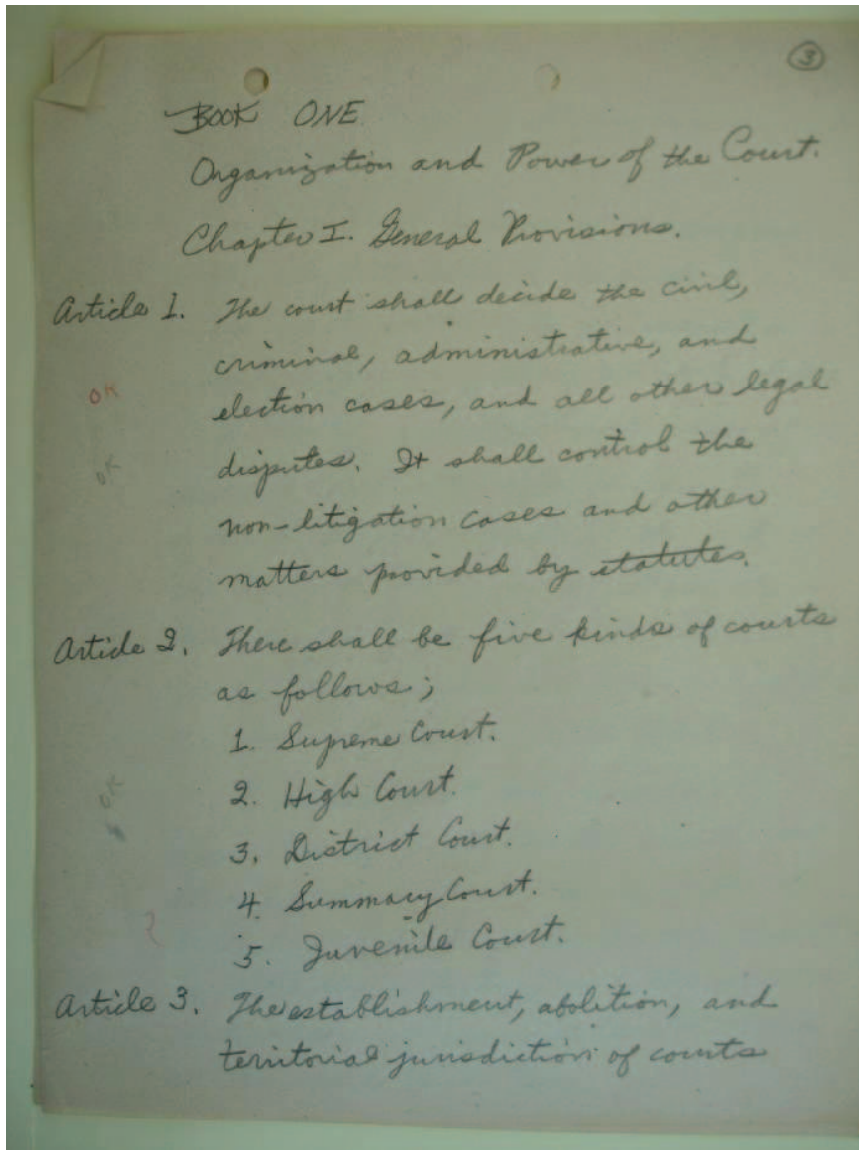 3
BOOK ONE
Organization and Power of the Court.
Chapter I. General Provisions.
Article 1. The court shall decide the civil,
criminal, administrative, and
OK
election cases, and all other legal
OK
disputes. It shall control the
non-litigation cases and other
matters provided by statutes.
Article 2. There shall be five kinds of courts
as follows;
1. Supreme Court.
2. High Court.
OK
3. District Court.
4. Summary Court.
?
5. Juvenile Court.
Article 3. The establishment, abolition, and
territorial jurisdiction of courts